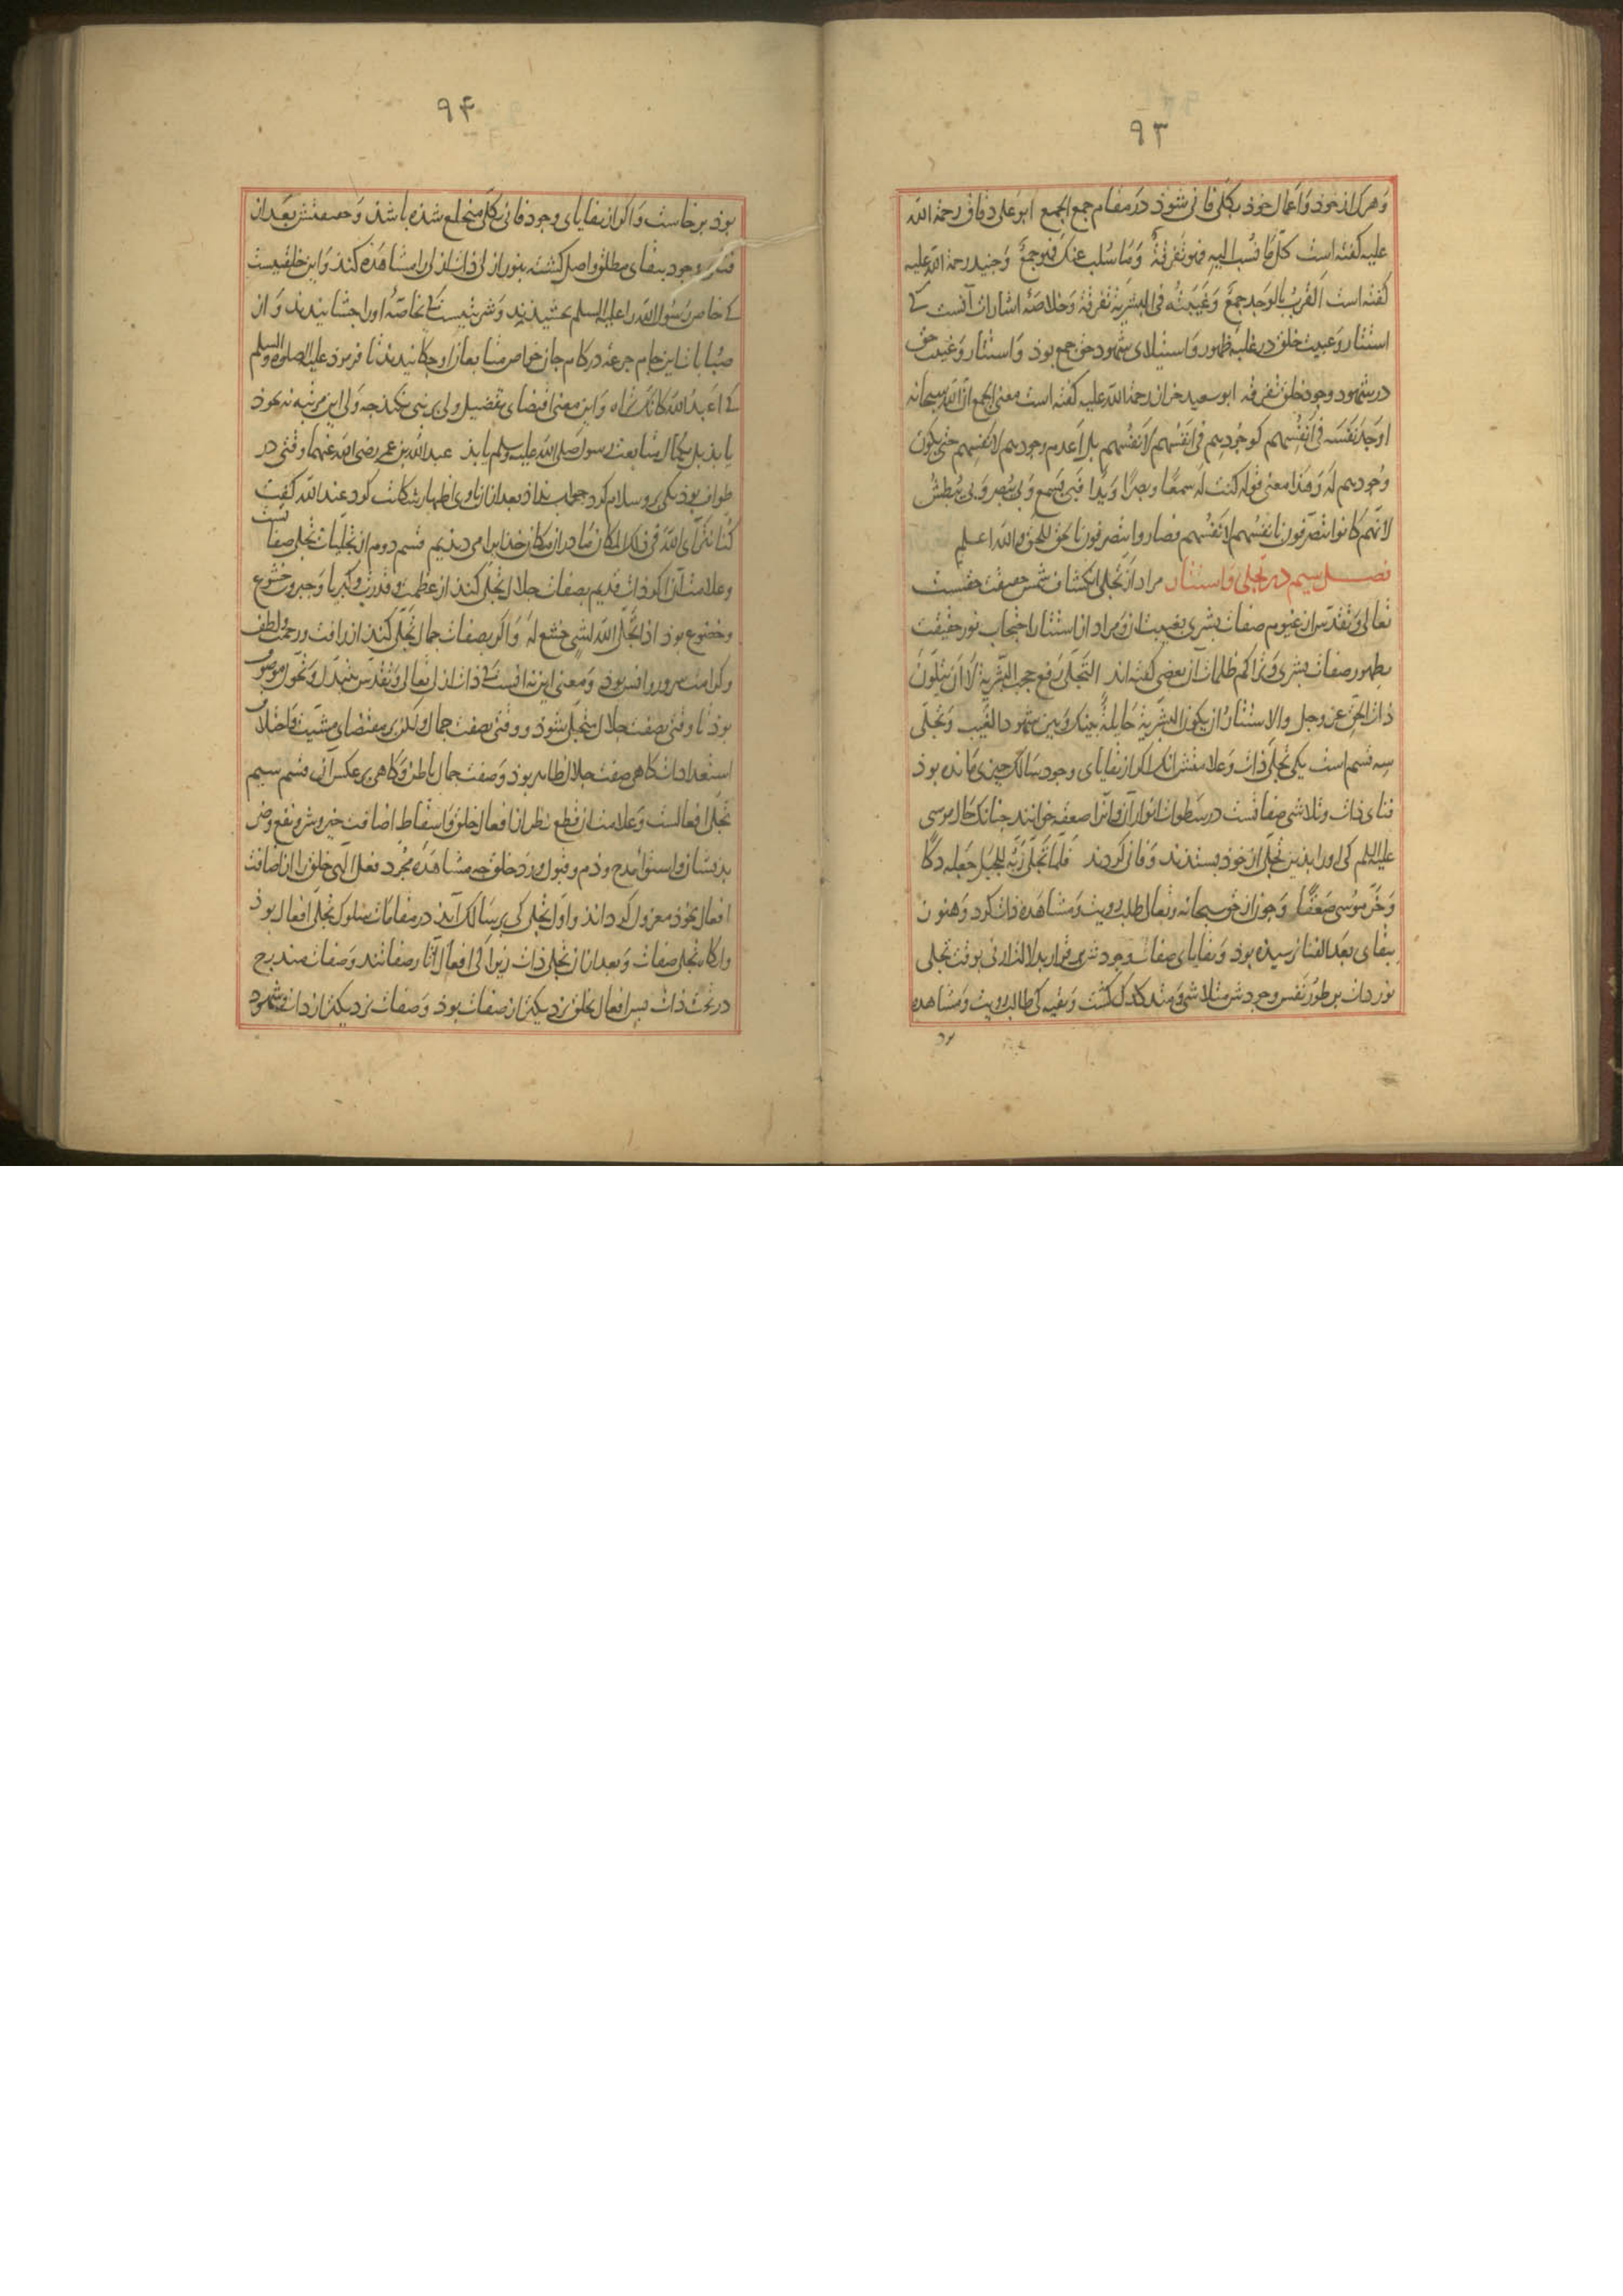 ۹۳
وَهرک از خوذ وَاعمال خوذ بکلّی فانی شوذ در مقام جمع الجمع ابوعلی دقاق رحمة الله
علیه کفته است کلّ ما نُسب الیه فهو تفرقةٌ وَمَا سُلب عنک فهو جمعٌ وَجنید رحمة الله علیه
کفته است القُربُ بالوَجد جمعٌ وَغَیبَتُه فی البشریّة تفرقةٌ وَخلاصهٔ اشارات آنست کی
استتار وَغیبت خلق در غلبهٔ ظهور وَاستیلای شهود حق جمع بوذ وَاستتار وَغیبت حق
در شهود وجود خلق تفرقه ابوسعید خراز رحمة الله علیه کفته است معنی الجمع انّ الله سبحانه
اوجَدَ نَفسَه فی اَنفُسِهم کوجُودِهم فی اَنفُسهم لاَنفُسهم بل اَعدم وجودهم لاَنفسهم حتی یکون
وُجودهم لَه وَهذا معنی قوله کنت له سمعًا وبصرًا وَیدًا فبی یَسمع وَبی یُبصر وَبی یُبطش
لاَنّهم کانوا یتصرّفون بانفسهم لانفسهم فصاروا یتصرفون بالحق للحق والله اعلم
فصـــل سیم در تجلی وَاستتار مراد از تجلی انکشاف شمس حقیقت حقست
تعالی وتقدّس از غیوم صفات بشری بغیبت آن ومراد از استتار احتجاب نور حقیقت
بظهور صفات بشری وَتراکم ظلمات آن بعضی کفته‌اند التّجلّی رَفع حجب البَشَریة لا اَن یتلوّن
ذات الحق عز وجل والاستتارُ ان یکون البشریة حایلةً بینک وَبین شهود الغَیب وَتجلّی
سه قسم است یکی تجلّی ذات وَعلامتش انک اکر از بقایای وجود سالک چیزی مَانده بوذ
فنای ذات وتلاشی صفاتست در سَطوات انوار آن وانرا صعقه خوانند چنانک حال موسی
علیه السلم کی اورا بذین تجلّی از خوذ بستذند وَفانی کردند فَلمّا تَجلّی رَبّه للجَبل جَعله دکًا
وَخَرّ مُوسی صَعِقًا وَچون از حق سبحانه وتعالی طلب رویت وَمشاهدهٔ ذات کرد وَهنوز
ببقای بَعد الفنا نرسیذه بوذ وَبقایای صفات وجودش برقرار بدلالت ارنی بوقت تجلی
نور ذات بر طور نَفس وجودش متلاشی وَمندک کشت وَبقیه کی طالب رویت وَمشاهده
بوذ
۹۴
بوذ برخاست وَاکر از بقایای وجود فانی بکلّی منخلع شذه باشذ وَحقیقتش بَعد از
فناء وجود ببقای مطلق واصل کشته بنور ازلی ذات ازلی را مشاهَذه کنذ وَاین خلعتیست
کی خاص رَسُول الله را علیه السلم بخشیذند وَشربتیست کی خاصّهٔ اورا چشانیدند وَاز
صُبابات این جام جرعهٔ در کام جان خواص متابعان او چکانیدند تا فرموذ علیه الصلوة والسلم
کی اُعبُد اللهَ کانّک تراه وَاین معنی اقتضای تفضیل ولی بر نبی نکنذ چه ولی این مرتبه نه بخوذ
یابذ بل بکمال متابعت رسول صلی الله علیه وسلم یابذ عبد الله بن عمر رضی الله عنهما وقتی در
طواف بوذ یکی برو سلام کرد جواب نداذ بعد از ان با وی اظهار شکایت کرد عبد الله کفت
کُنّا نَتَرآی اللهَ فی ذلک المکان مَا در آن مکان خذایرا می دیذیم قسم دوم از تجلیات تجلی صفاتست
وعلامت آن اکر ذات قدیم بصفات جلال تجلّی کنذ از عظمت وقدرت وکبریا وَجبروت خشوع
وخضوع بوذ اذا تجلّی الله لشیءٍ خشع لَه وَاکر بصفات جمال تجلّی کنذ از رافت ورحمت ولطف
وکرامت سرور وانس بوذ وَمعنی این نه آنست کی ذات ازلی تعالی وَتقدّس بتبدّل وَتحوّل موصوف
بوذ تا وقتی بصفت جلال متجلی شوذ ووقتی بصفت جمال ولکن بر مقتضای مشیّت وَاختلاف
استعدادات کاهی صفت جلال ظاهر بوذ وَصفت جمال باطن وَکاهی بر عکس آن قسم سیم
تجلّی افعالست وَعلامت آن قطع نظر از افعال خلق وَاسقاط اضافت خیر وشر ونفع وضر
بدیشان واستواء مدح وذم وقبول ورَد خلق چه مشاهَدهٔ مجُرّد فعل الهی خلق را از اضافت
افعال بخوذ معزول کرداند واوّل تجلی کی بر سَالک آیذ در مقامات سلوک تجلی افعال بوذ
وانکاه تجلی صفات وَبعد از ان تجلی ذات زیرا کی افعال آثار صفاتند وَصفات مندرج
در تحت ذات پس افعال بخلق نزدیکتر از صفات بوذ وَصفات نزدیکتر از ذات وشهود